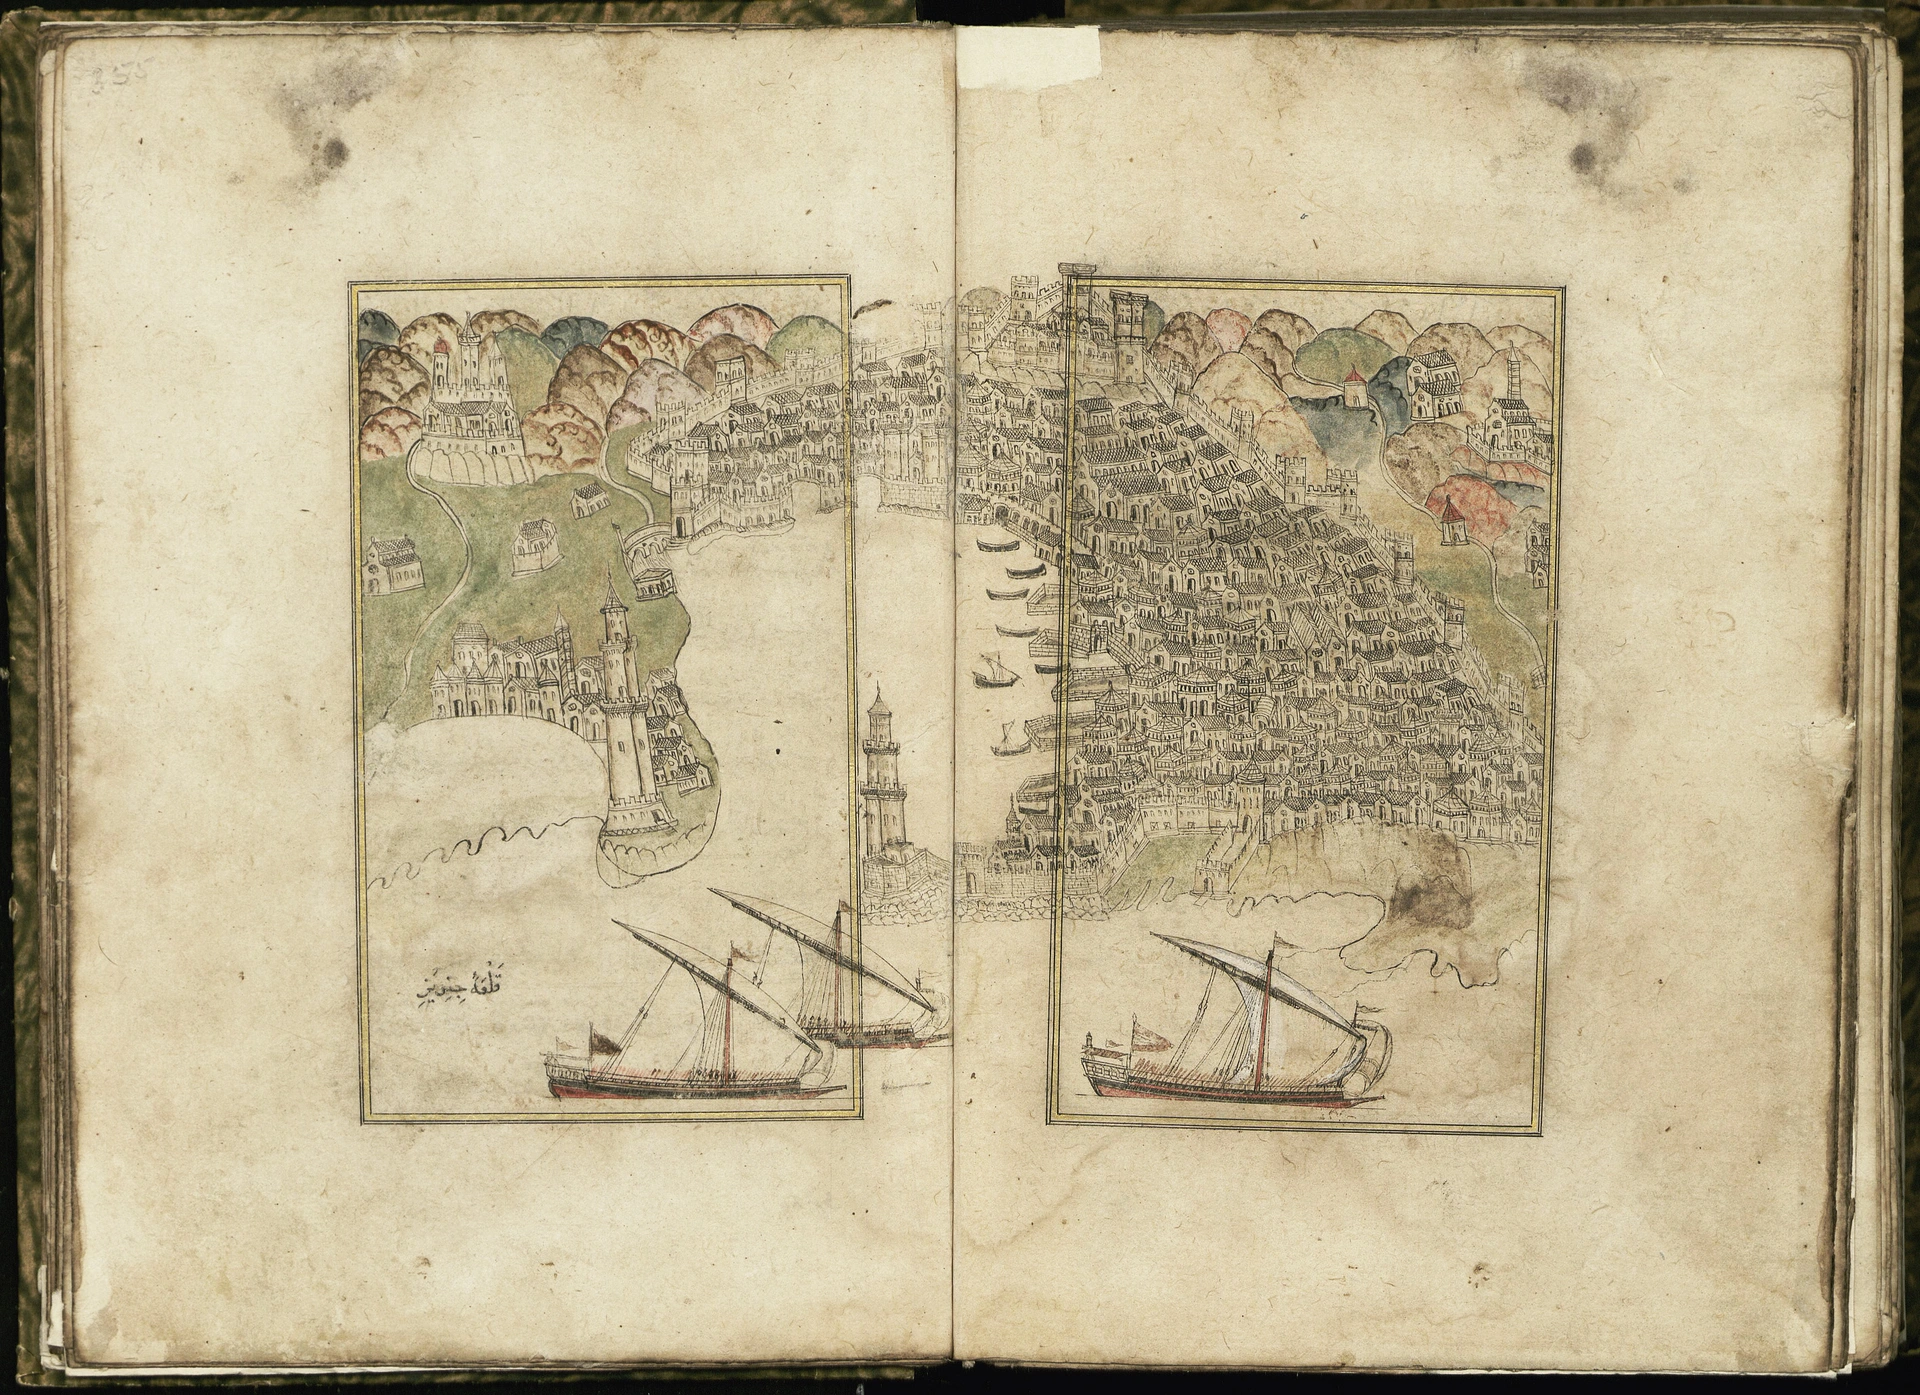 355
قَلْعَهُٔ جِنِوِيزِ